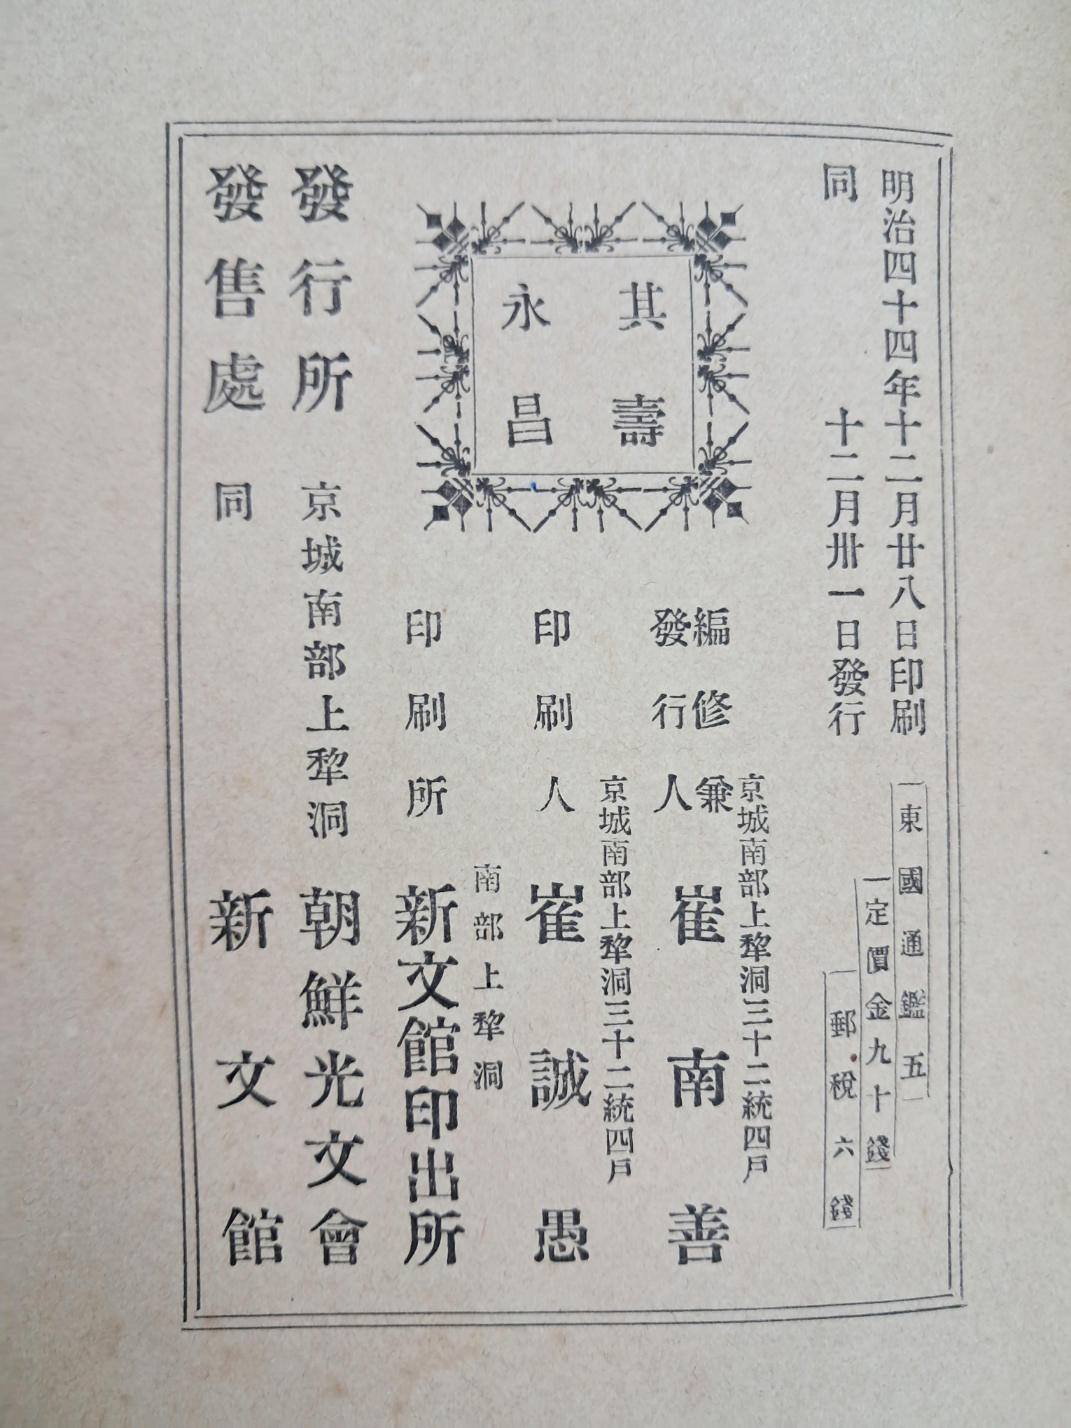 明治四十四年十二月廿八日印刷
同 十二月卅一日發行
東國通鑑五
定價金九十錢
郵稅六錢
其壽
永昌
京城南部上犂洞三十二統四戶
編修兼
發行人 崔南善
京城南部上犂洞三十二統四戶
印刷人 崔誠愚
南部上犂洞
印刷所 新文館印出所
發行所 京城南部上犂洞 朝鮮光文會
發售處 同 新文館